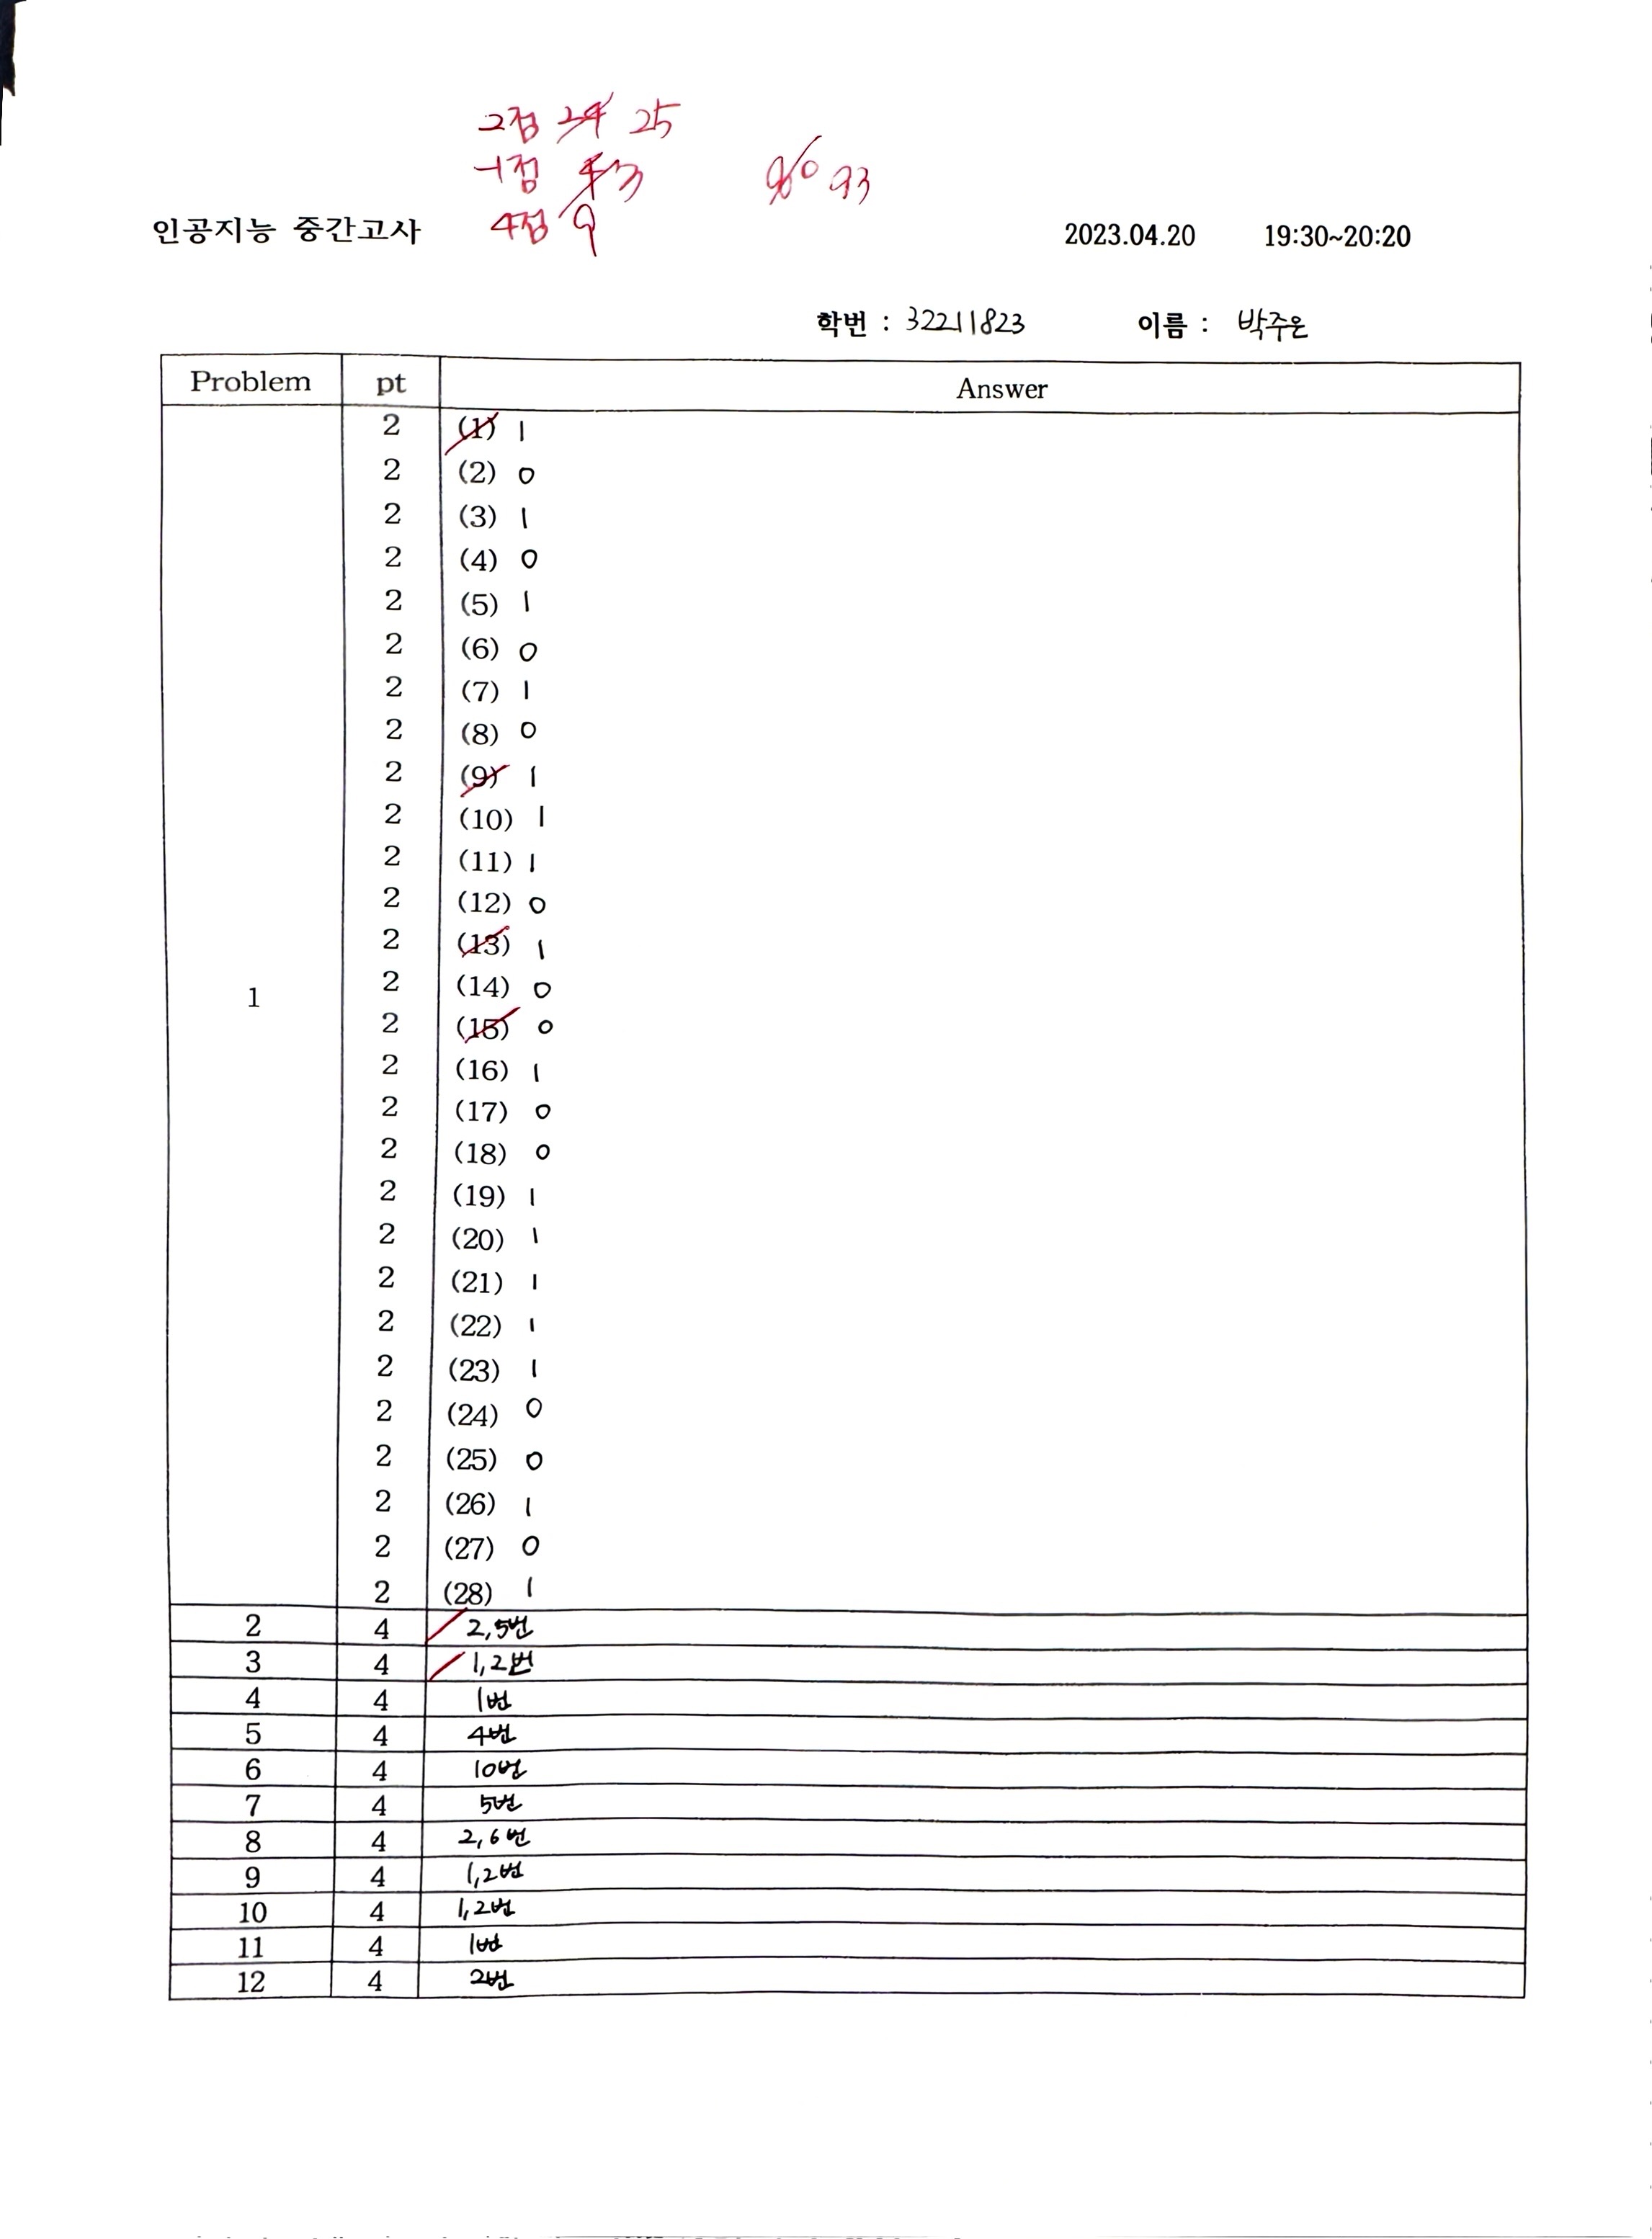 2점 24 25
-1점 4 3 90 93
4점 9
인공지능 중간고사 2023.04.20 19:30~20:20
학번 : 32211823 이름 : 박주은
Problem pt Answer
1
2 (1) 1
2 (2) 0
2 (3) 1
2 (4) 0
2 (5) 1
2 (6) 0
2 (7) 1
2 (8) 0
2 (9) 1
2 (10) 1
2 (11) 1
2 (12) 0
2 (13) 1
2 (14) 0
2 (15) 0
2 (16) 1
2 (17) 0
2 (18) 0
2 (19) 1
2 (20) 1
2 (21) 1
2 (22) 1
2 (23) 1
2 (24) 0
2 (25) 0
2 (26) 1
2 (27) 0
2 (28) 1
2 4 2,5번
3 4 1,2번
4 4 1번
5 4 4번
6 4 10번
7 4 5번
8 4 2,6번
9 4 1,2번
10 4 1,2번
11 4 1번
12 4 2번